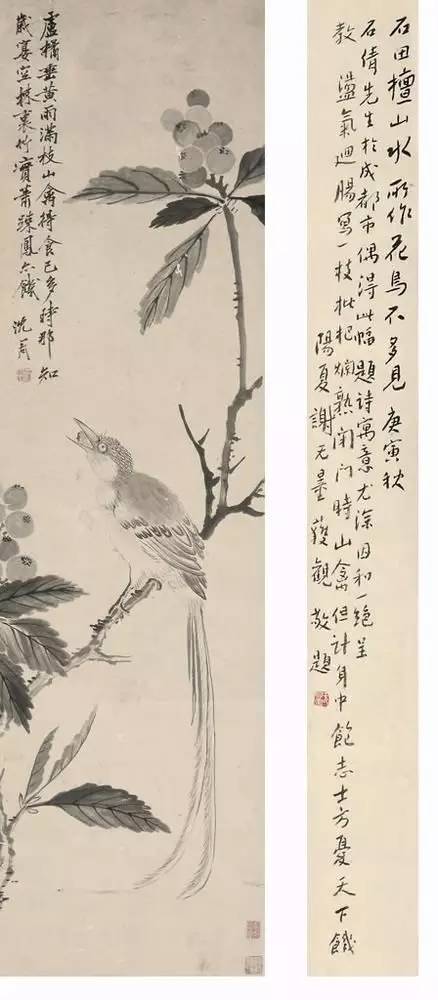 盧橘垂黃雨滿枝山禽得食已多時那知
歲宴空林裏竹實蕭疎鳳亦饑 沈周
石田擅山水所作花鳥不多見庚寅秋
石倩先生於成都市偶得此幅題詩寓意尤深因和一絕呈
教 盪氣迴腸寫一枝枇杷爛熟閉門時山禽但計身中飽志士方憂天下饑
陽夏謝无量獲觀敬題